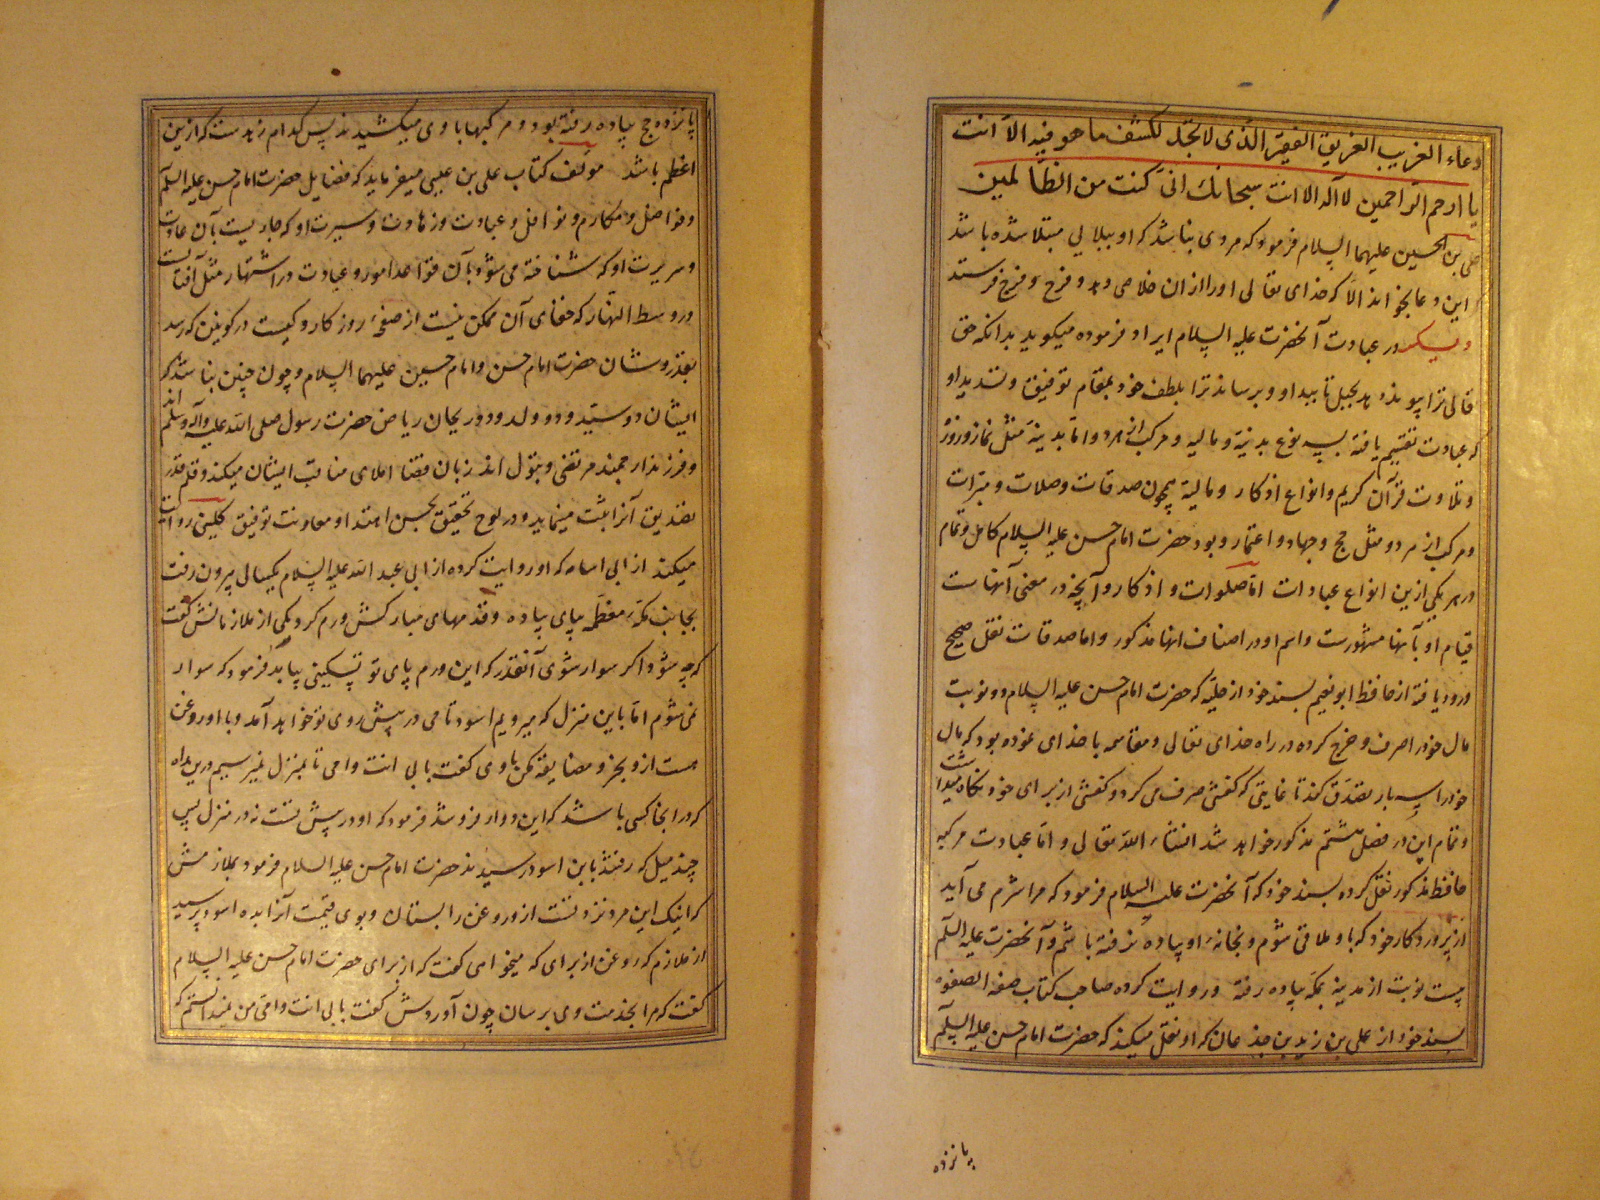 دعاء الغریب الغریق الفقیر الذی لا یجد لکشف ما هو فیه الا انت
یا ارحم الراحمین لا اله الا انت سبحانک انی کنت من الظالمین
علی بن الحسین علیهما السلام فرمود که مردی نباشد که او ببلایی مبتلا شده باشد
این دعا بخواند الا که خدای تعالی او را از ان خلاصی دهد و فرح و فرج فرستد
و دیگر در عبادت آنحضرت علیه السلام ایراد فرموده میگوید بدانکه حق
تعالی ترا بتأیید او و برساند ترا بلطف خود بمقام توفیق و تسدید او
که عبادت تقسیم یافته بسه نوع بدنیة و مالیه و مرکب از هر دو اما بدنیة مثل نماز و روزه
و تلاوت قرآن کریم و انواع اذکار و مالیة همچون صدقات و صلات و مبرات
و مرکب از هر دو مثل حج و جهاد و اعتمار و بود حضرت امام حسن علیه السلام کامل و تمام
در هر یکی ازین انواع عبادات اما صلوات و اذکار و آنچه در معنی آنهاست
قیام او بآنها مشهورست و اسم او در اصناف انها مذکور و اما صدقات نقل صحیح
ورود یافته از حافظ ابو نعیم بسند خود از حلیه که حضرت امام حسن علیه السلام دو نوبت
مال خود را صرف و خرج کرده در راه خدای تعالی و مقاسمه با خدای نموده بود که مال
خود را سه بار تصدق کند تا غایتی که کفشی صرف می کرد و کفشی از برای خود نگاه میداشت
و تمام این در فصل هشتم مذکور خواهد شد انشاء الله تعالی و اما عبادت مرکبه
حافظ مذکور نقل کرده بسند خود که آنحضرت علیه السلام فرمود که مرا شرم می آید
از پروردگار خود که با او ملاقی شوم و بخانهٔ او پیاده نرفته باشم و آنحضرت علیه السلام
بیست نوبت از مدینه بمکه پیاده رفته و روایت کرده صاحب کتاب صفه الصفوه
بسند خود از علی بن زید بن جذعان که او نقل میکند که حضرت امام حسن علیه السلام
پانزده
پانزده حج پیاده رفته بود و مرکبها با وی میکشیدند پس کدام زهدست که ازین
اعظم باشد مؤلف کتاب علی بن عیسی میفرماید که فضایل حضرت امام حسن علیه السلم
و فواضل و مکارم و نوافل و عبادت و زهادت و سیرت او که جاریست بآن عادت
و سریرت او که شناخته می شود بآن قواعد امور و عبادت در اشتهار مثل آفتابست
در وسط النهار که خفای آن ممکن نیست از صفحهٔ روزگار و کیست در کونین که رسد
بقدر و شان حضرت امام حسن و امام حسین علیهما السلام و چون چنین نباشد که
ایشان دو سید و دو ولد و دو ریحان ریاض حضرت رسول صلی الله علیه وآله وسلم اند
و فرزند ارجمند مرتضی و بتول اند زبان قضا املای مناقب ایشان میکند و قلم قدر
تصدیق آنرا ثبت مینماید و در لوح تحقیق بحسن اهتدا و معاونت توفیق کلینی روایت
میکند از ابی اسامه که او روایت کرده از ابی عبد الله علیه السلام یکسالی بیرون رفت
بجانب مکهٔ معظمه بپای پیاده و قدمهای مبارکش ورم کرد یکی از ملازمانش گفت
که چه شود اگر سوار شوی آنقدر که این ورم پای تو تسکینی یابد فرمود که سوار
نمی شوم اما باین منزل که میرویم اسود نامی در پیش روی تو خواهد آمد و با او روغن
هست از و بخر و مضایقه مکن با وی گفت بابی انت و امی تا بمنزل نمیرسیم درین راه
که در اینجا کسی باشد که این دوا بفروشد فرمود که او در پیش تست نه در منزل پس
چند میل که رفتند باین اسود رسیدند حضرت امام حسن علیه السلام فرمود بملازمش
که اینک این مرد نزد تست از و روغن را بستان و بوی قیمت آنرا بده اسود پرسید
از ملازم که روغن از برای که میخواهی گفت که از برای حضرت امام حسن علیه السلام
گفت که مرا بخدمت وی برسان چون آوردش گفت بابی انت و امی من نمیدانستم که